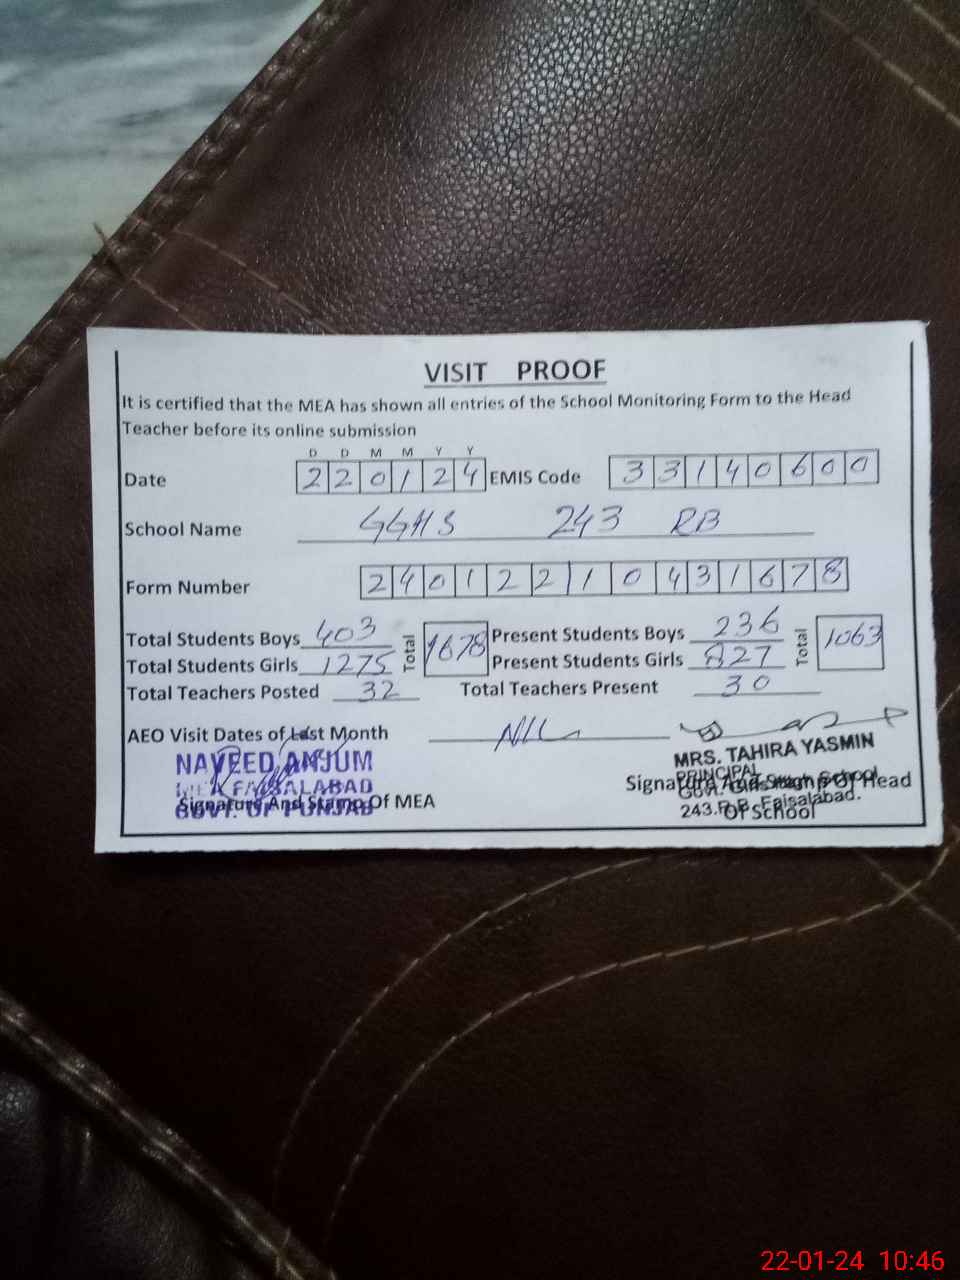 VISIT PROOF
It is certified that the MEA has shown all entries of the School Monitoring Form to the Head
Teacher before its online submission
D D M M Y Y
Date 220124 EMIS Code 33140600
School Name GGHS 243 RB
Form Number 2401221 0431678
Total Students Boys 403 Total 1678 Present Students Boys 236 Total 1063
Total Students Girls 1275 Present Students Girls 827
Total Teachers Posted 32 Total Teachers Present 30
AEO Visit Dates of Last Month NIL
NAVEED ANJUM
MEA FAISALABAD
GOVT. OF PUNJAB
Signature And Stamp Of MEA
MRS. TAHIRA YASMIN
PRINCIPAL
Govt. Girls High School
243.R.B. Faisalabad.
Signature And Stamp Of Head
Of School
22-01-24 10:46